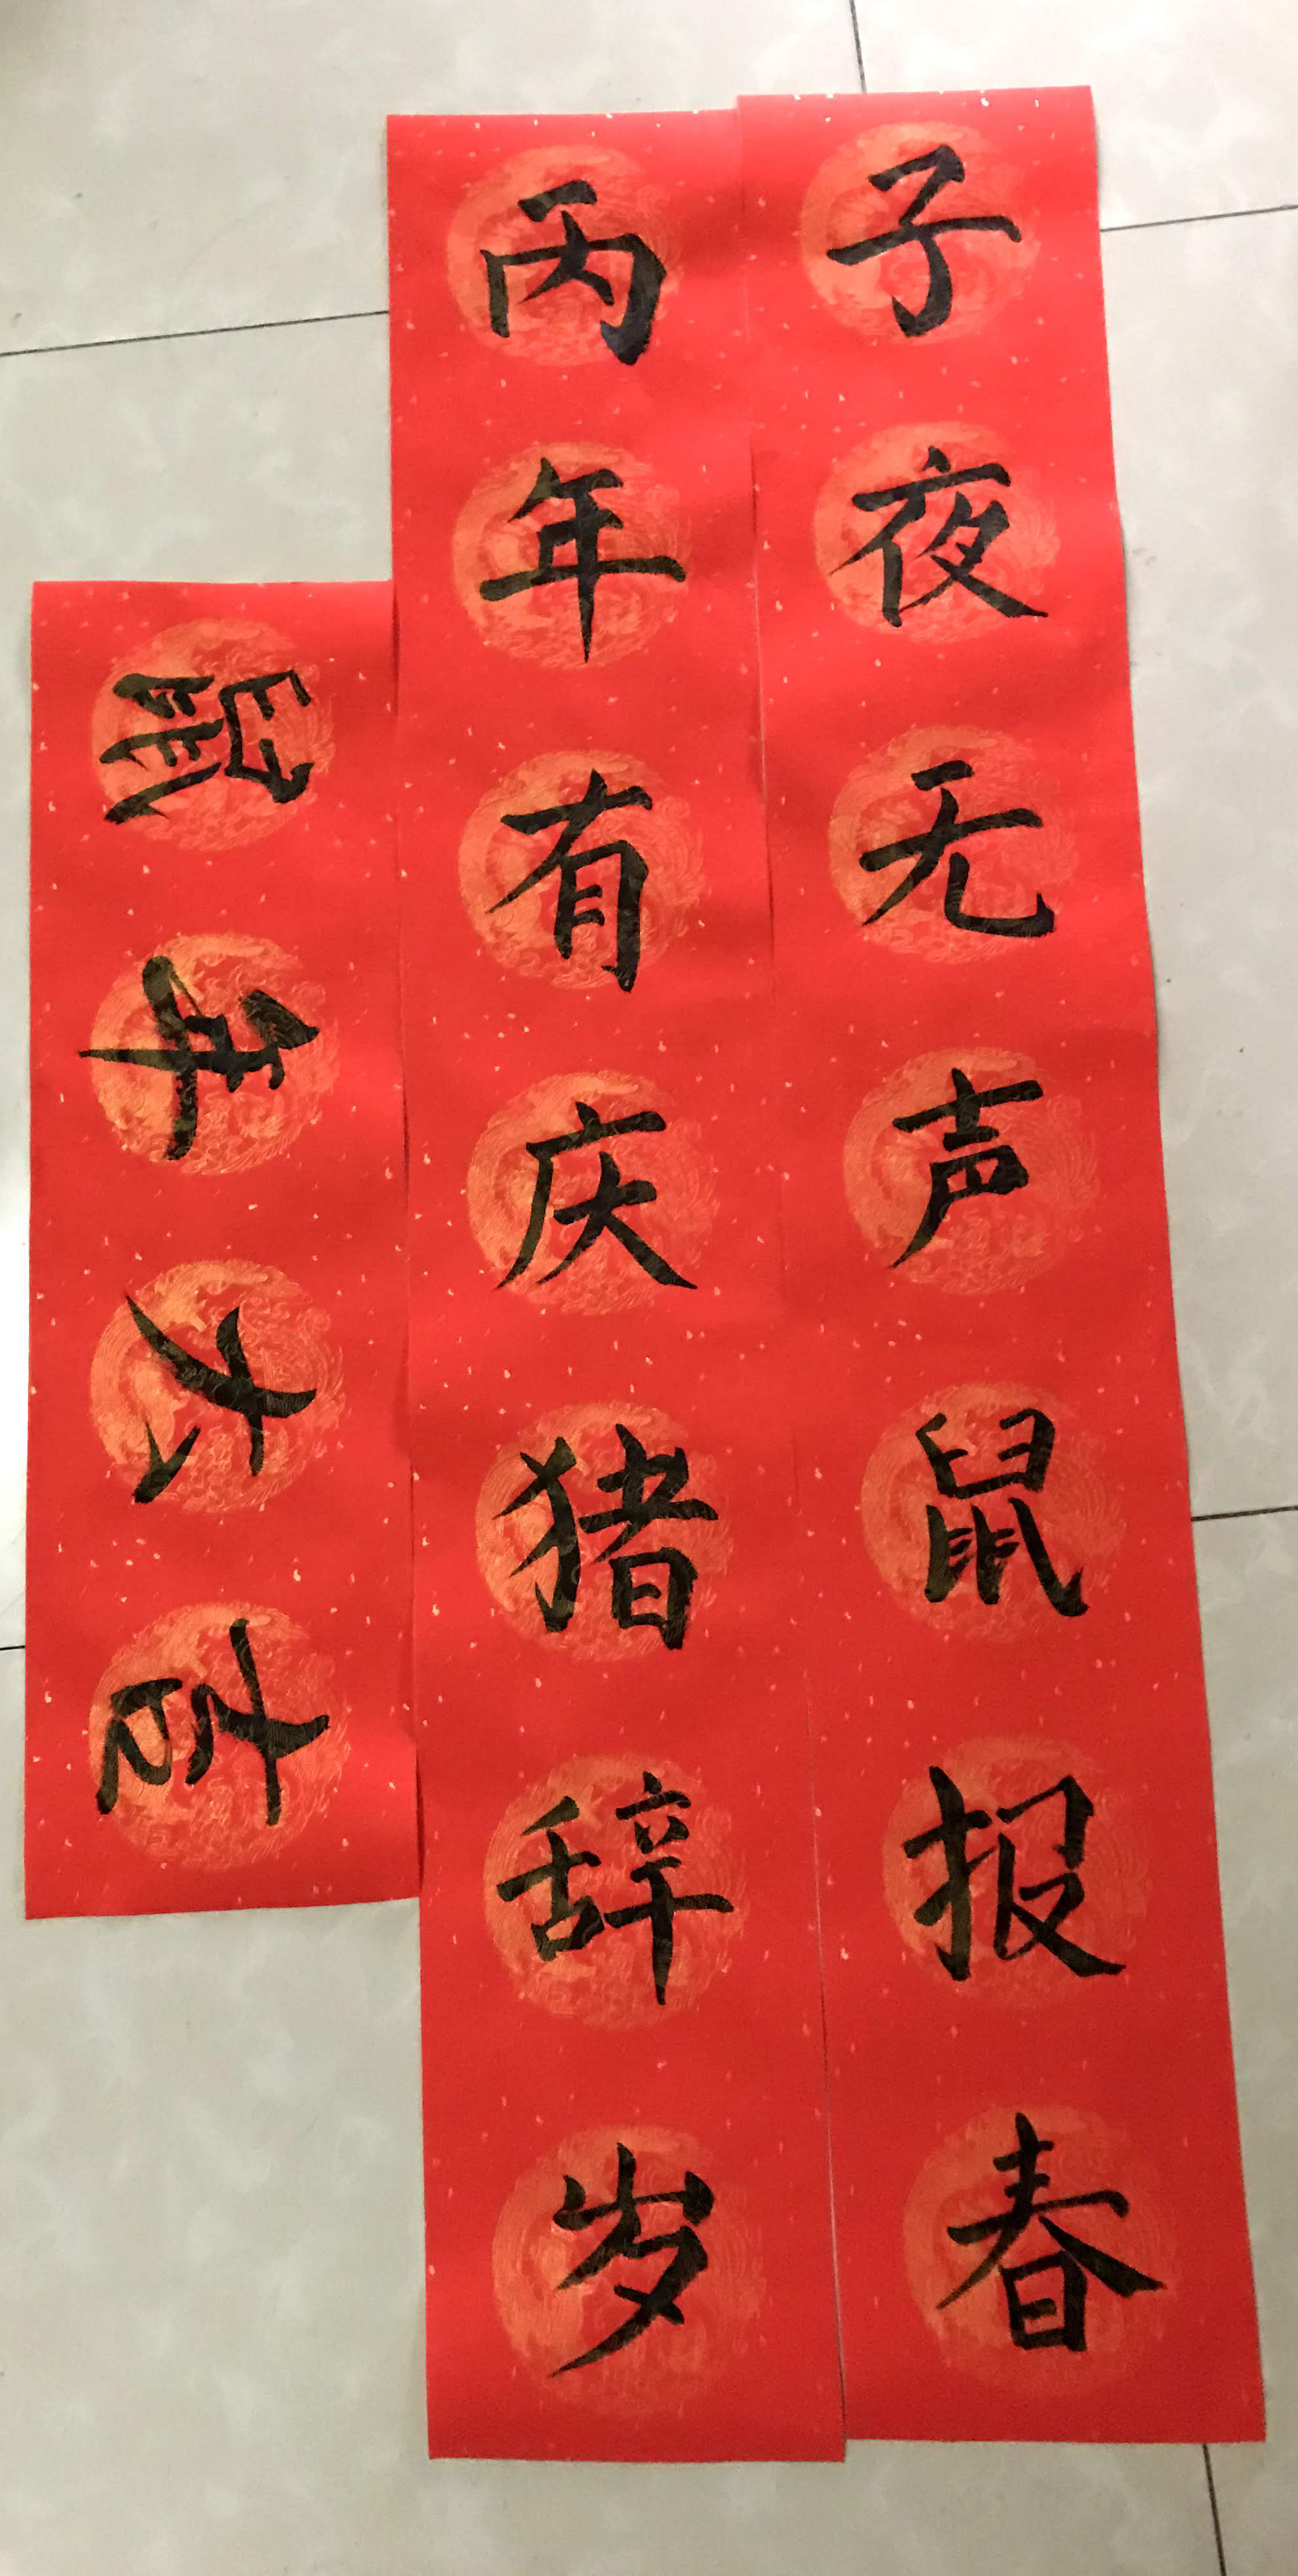 子夜无声鼠报春
丙年有庆猪辞岁
鼠年大吉